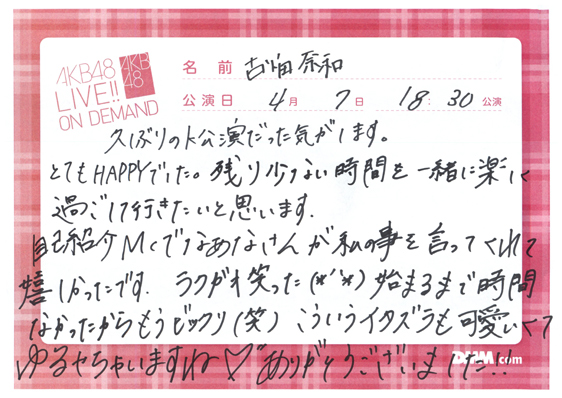 AKB48
LIVE!!
ON DEMAND
AKB
48
名前 古畑奈和
公演日 4月7日 18:30公演
久しぶりのK公演だった気がします。
とてもHAPPYでした。残り少ない時間を一緒に楽しく
過ごして行きたいと思います。
自己紹介MCでなあなさんが私の事を言ってくれて
嬉しかったです。ラクガキ笑った(*'^'*)始まるまで時間
なかったからもうビックリ(笑)こういうイタズラも可愛いくて
ゆるせちゃいますね♡ありがとうございました!!
DMM.com